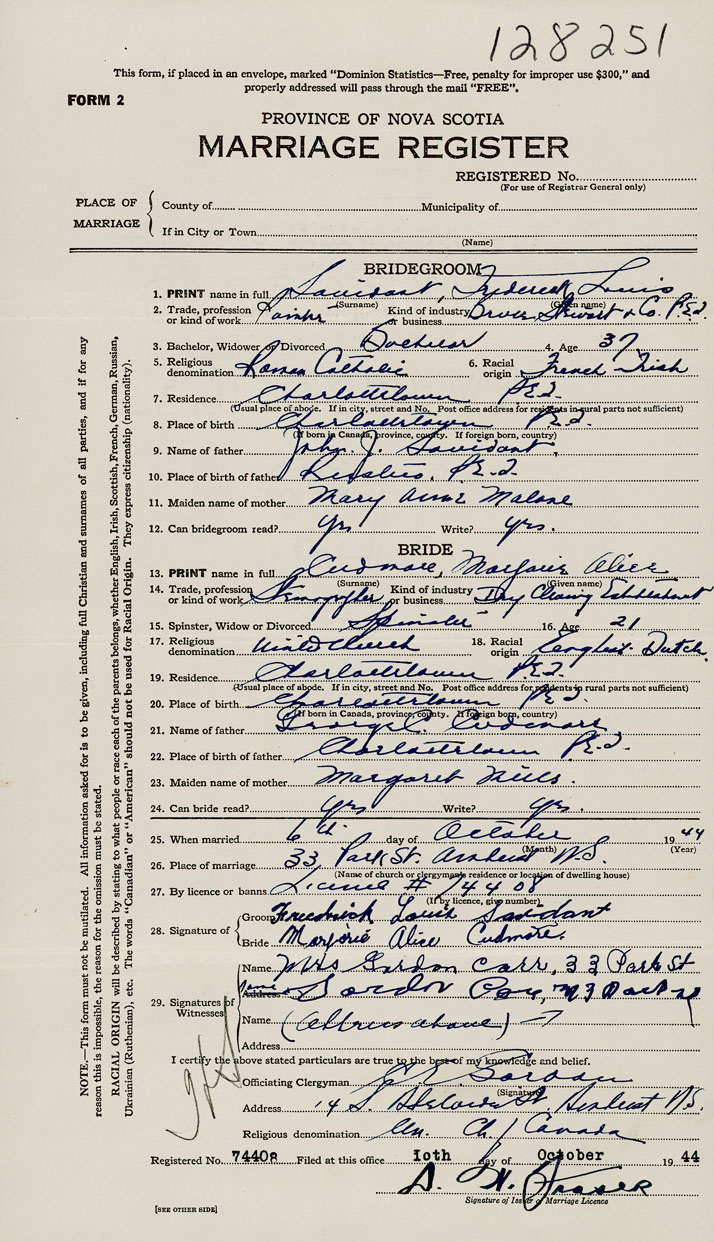 128251
This form, if placed in an envelope, marked "Dominion Statistics—Free, penalty for improper use $300," and
properly addressed will pass through the mail "FREE".
FORM 2
PROVINCE OF NOVA SCOTIA
MARRIAGE REGISTER
REGISTERED No.
(For use of Registrar General only)
PLACE OF MARRIAGE
County of Municipality of
If in City or Town
(Name)
BRIDEGROOM
1. PRINT name in full Frederick Louis
(Surname) (Given name)
2. Trade, profession or kind of work Kind of industry or business Bruce Stewart & Co. P.E.I.
3. Bachelor, Widower or Divorced Bachelor 4. Age 37
5. Religious denomination Roman Catholic 6. Racial origin French Irish
7. Residence Charlottetown P.E.I.
(Usual place of abode. If in city, street and No. Post office address for residents in rural parts not sufficient)
8. Place of birth Charlottetown P.E.I.
(If born in Canada, province, county. If foreign born, country)
9. Name of father John J.
10. Place of father P.E.I.
11. Maiden name of mother Mary Anne Malone
12. Can bridegroom read? Yes Write? Yes.
BRIDE
13. PRINT name in full Cudmore, Marjorie Alice
(Surname) (Given name)
14. Trade, profession or kind of work Stenographer Kind of industry or business Dry Cleaning Establishment
15. Spinster, Widow or Divorced Spinster 16. Age 21
17. Religious denomination United Church 18. Racial origin English Dutch
19. Residence Charlottetown P.E.I.
(Usual place of abode. If in city, street and No. Post office address for residents in rural parts not sufficient)
20. Place of birth Charlottetown P.E.I.
(If born in Canada, province, county. If foreign born, country)
21. Name of father George C. Cudmore
22. Place of birth of father Charlottetown P.E.I.
23. Maiden name of mother Margaret Mills.
24. Can bride read? Yes Write? Yes.
25. When married 6th day of October 1944
(Month) (Year)
26. Place of marriage 33 Park St. Amherst N.S.
(Name of church or clergyman's residence or location of dwelling house)
27. By licence or banns License # 74408
(If by licence, give number)
28. Signature of
Groom Frederick Louis
Bride Marjorie Alice Cudmore.
29. Signatures of Witnesses
Name Mrs Gordon Carr, 33 Park St
Address Name Gordon
Name (Address above)
Address
I certify the above stated particulars are true to the best of my knowledge and belief.
Officiating Clergyman
(Signature)
Address 14 S. Adelaide St. Amherst N.S.
Religious denomination Un. Ch / Canada
Registered No. 74408 Filed at this office 10th day of October 1944
Signature of Issuer of Marriage Licence
[SEE OTHER SIDE]
NOTE.—This form must not be mutilated. All information asked for is to be given, including full Christian and surnames of all parties, and if for any
reason this is impossible, the reason for the omission must be stated.
RACIAL ORIGIN will be described by stating to what people or race each of the parents belongs, whether English, Irish, Scottish, French, German, Russian,
Ukrainian (Ruthenian), etc. The words "Canadian" or "American" should not be used for Racial Origin. They express citizenship (nationality).